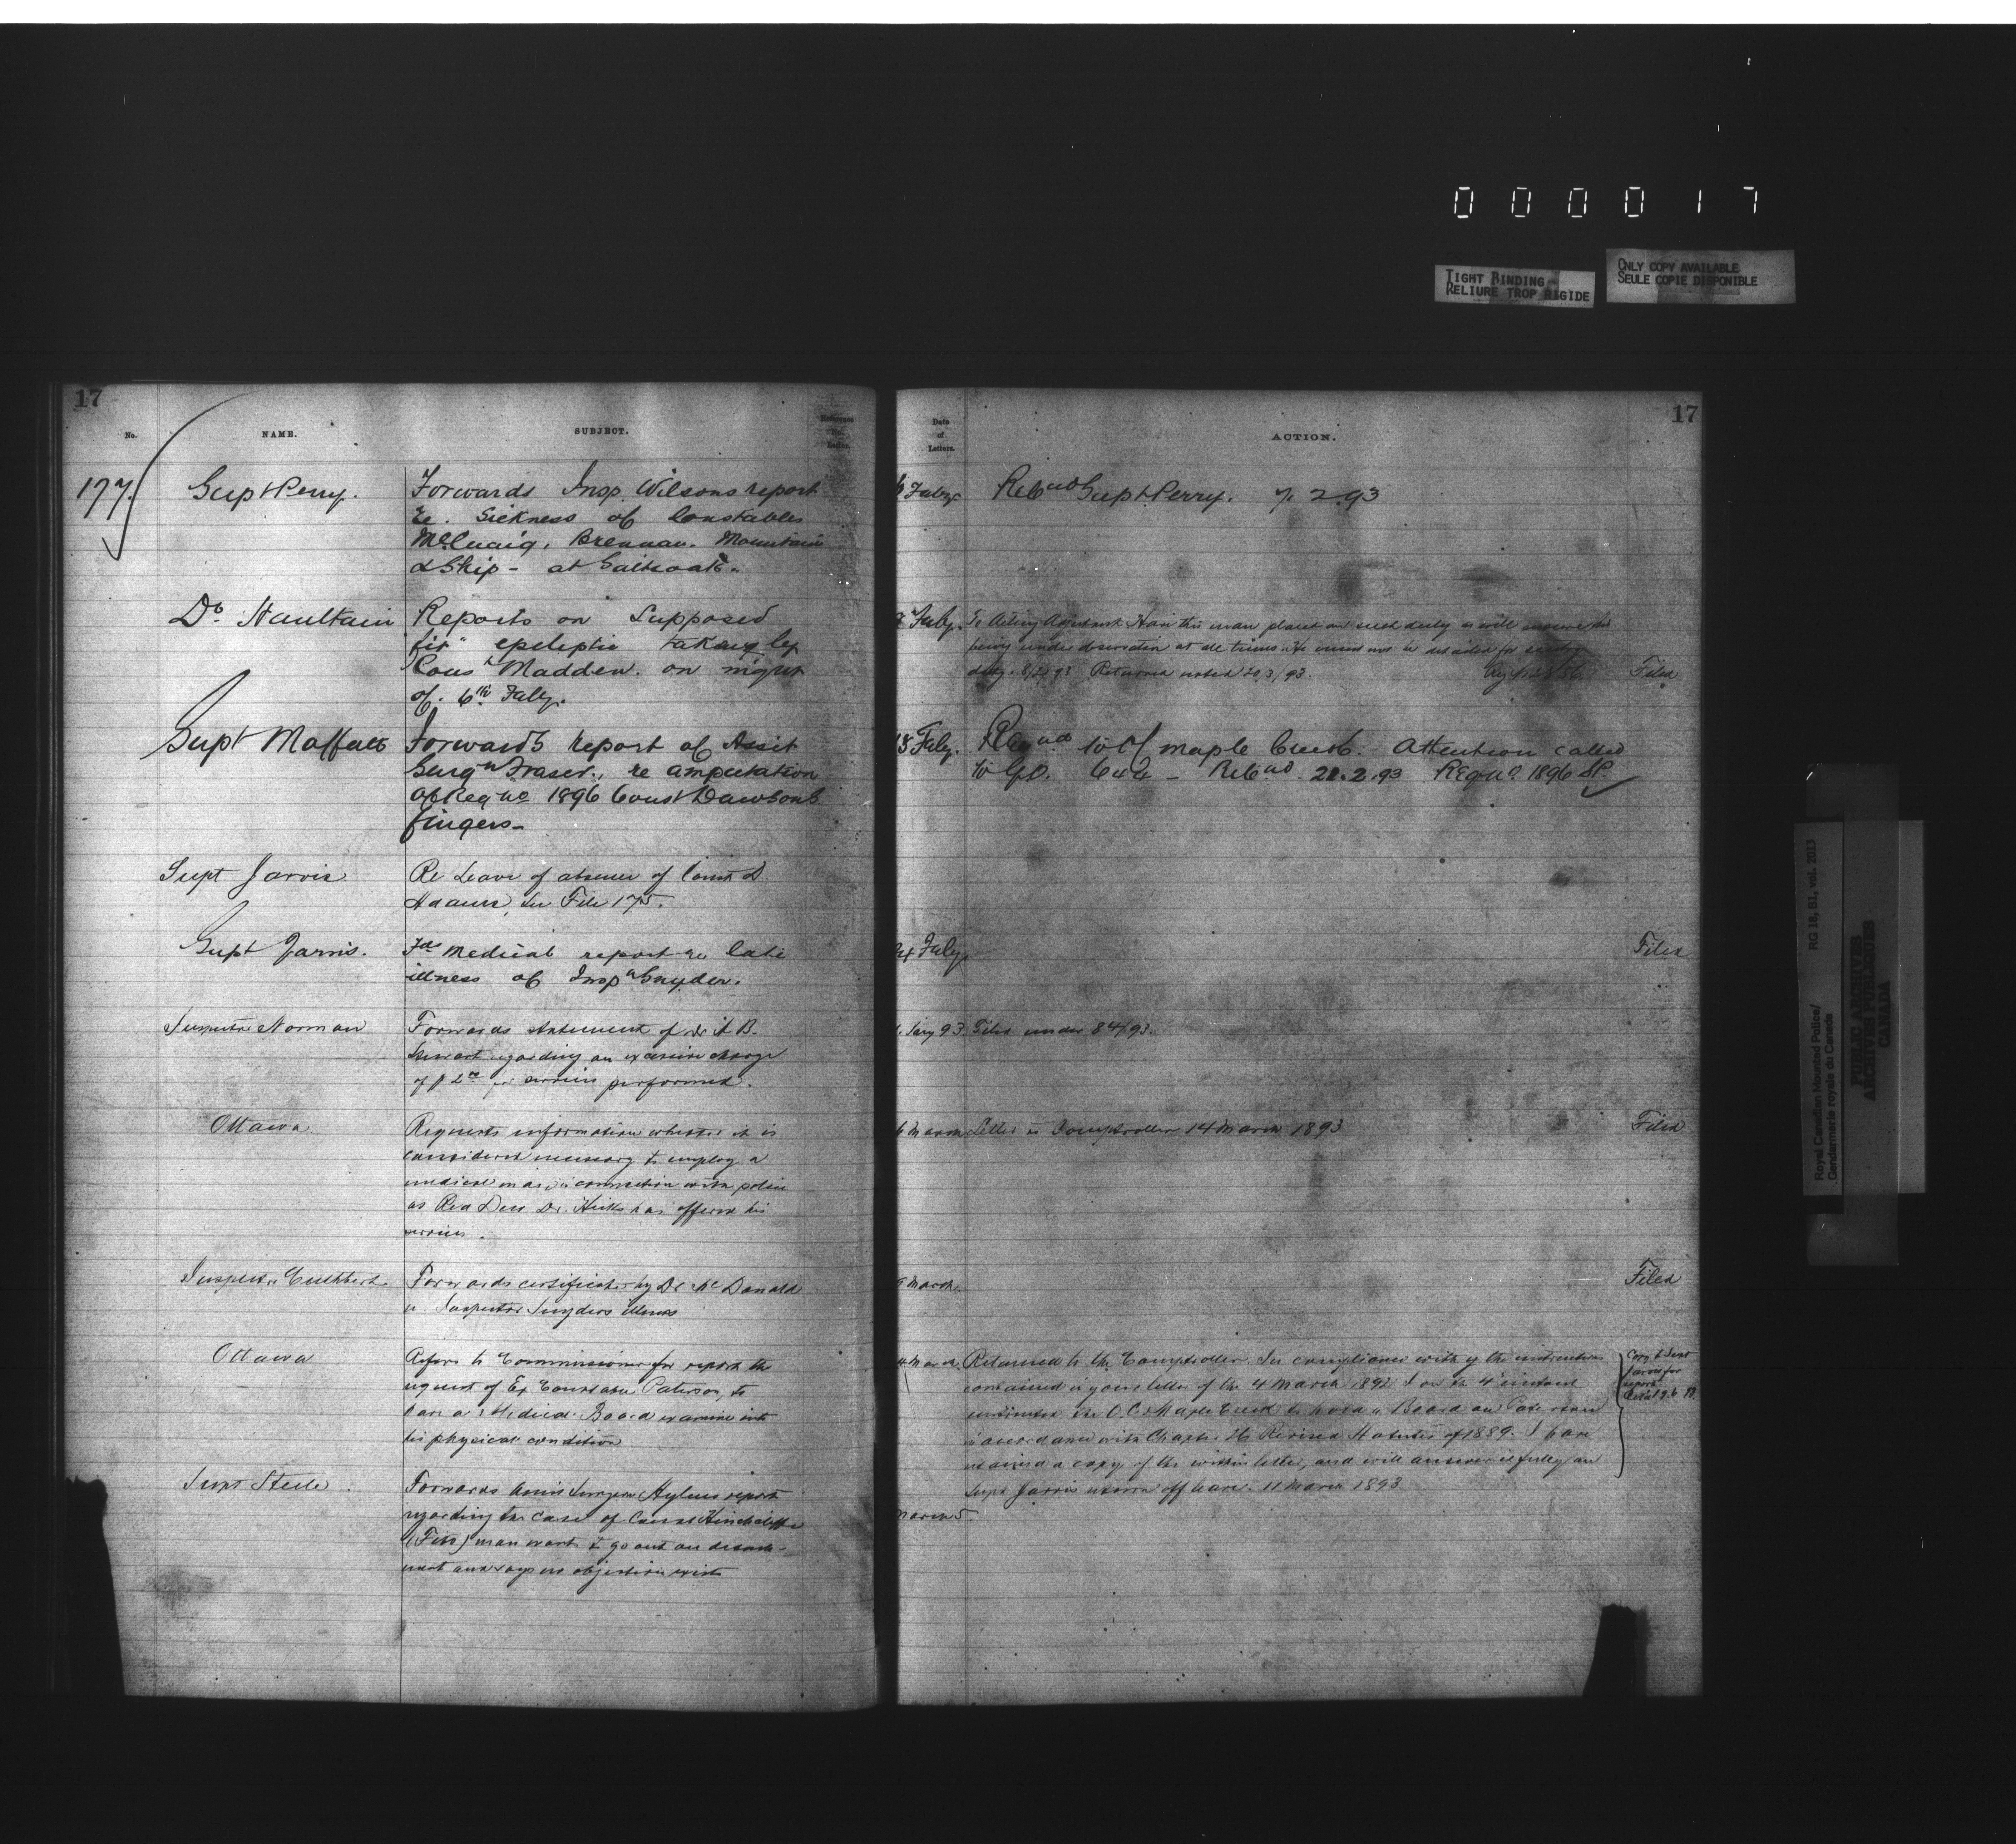 000017
TIGHT BINDING
RELIURE TROP RIGIDE
ONLY COPY AVAILABLE
SEULE COPIE DISPONIBLE
17
No.
NAME.
SUBJECT.
177.
Supt Perry.
Forwards Insp. Wilsons report
re. Sickness of Constables
McCuaig, Brennan. Mountain
& Ship - at Saltcoats.
Dr. Haultain
Reports on Supposed
fit " epeleptic taking by
Const Madden. on night
of. 6th Faby.
Supt Moffatt
Forwards report of Assist
Surgn Fraser., re amputation
of Reg no 1896 Const Dawsons
fingers-
Supt Jarvis
Re Leave of absence of Const D.
Adams, see File 175.
Supt Jarvis.
Fds Medical report re late
illness of Inspr Snyder.
Inspector Norman
Forwards statement of Dr A B.
Stewart regarding an excessive charge
of $2.00 for services performed.
Ottawa
Requests information whether it is
considered necessary to employ a
medical man in connection with police
as Red Deer Dr. Hicks has offered his
services.
Inspector Cuthbert.
Forwards certificate by Dr McDonald
re Inspector Snyders illness
Ottawa
Refers to Commissioner for report the
request of Ex Constable Paterson, to
have a Medical Board examine into
his physical condition
Supt Steele.
Forwards Assis Surgeon Aylens report
regarding the case of Const Hinchcliffe
(Fits) man wants to go out on detach-
ment and says no objection exists
17
Date
of
Letters.
ACTION.
6 Faby
Retnd Supt Perry. 7. 2 93
7 Faby.
To Acting Adjutant Have this man placed on such duty as will ensure his
being under observation at all times. He must not be detailed for sentry
duty. 8/2/93 Returned noted 20/3/93.
Filed
18 Faby.
Regd to O/C Maple Creek. Attention called
to G.O. 642 - Retnd. 21.2.93 Reg no 1896 DP.
24 Faby.
Filed
Jany 93.
Filed under 84/93.
6 March
Letter to Comptroller 14 March 1893
Filed
March.
Filed
4 March
Returned to the Comptroller. In compliance with the instruction
contained in your letter of the 4 March 1892 I on the 4 instant
instructed the O.C. Maple Creek to hold a Board on Paterson
in accordance with Chapter 26 Revised Statutes of 1889. I have
retained a copy of the within letter, and will answer it fully on
Supt Jarvis return off leave. 11 March 1893
Copy to Supt
Jarvis for
report
March 5
Royal Canadian Mounted Police/
Gendarmerie royale du Canada
RG 18, B1, vol. 2013
PUBLIC ARCHIVES
ARCHIVES PUBLIQUES
CANADA